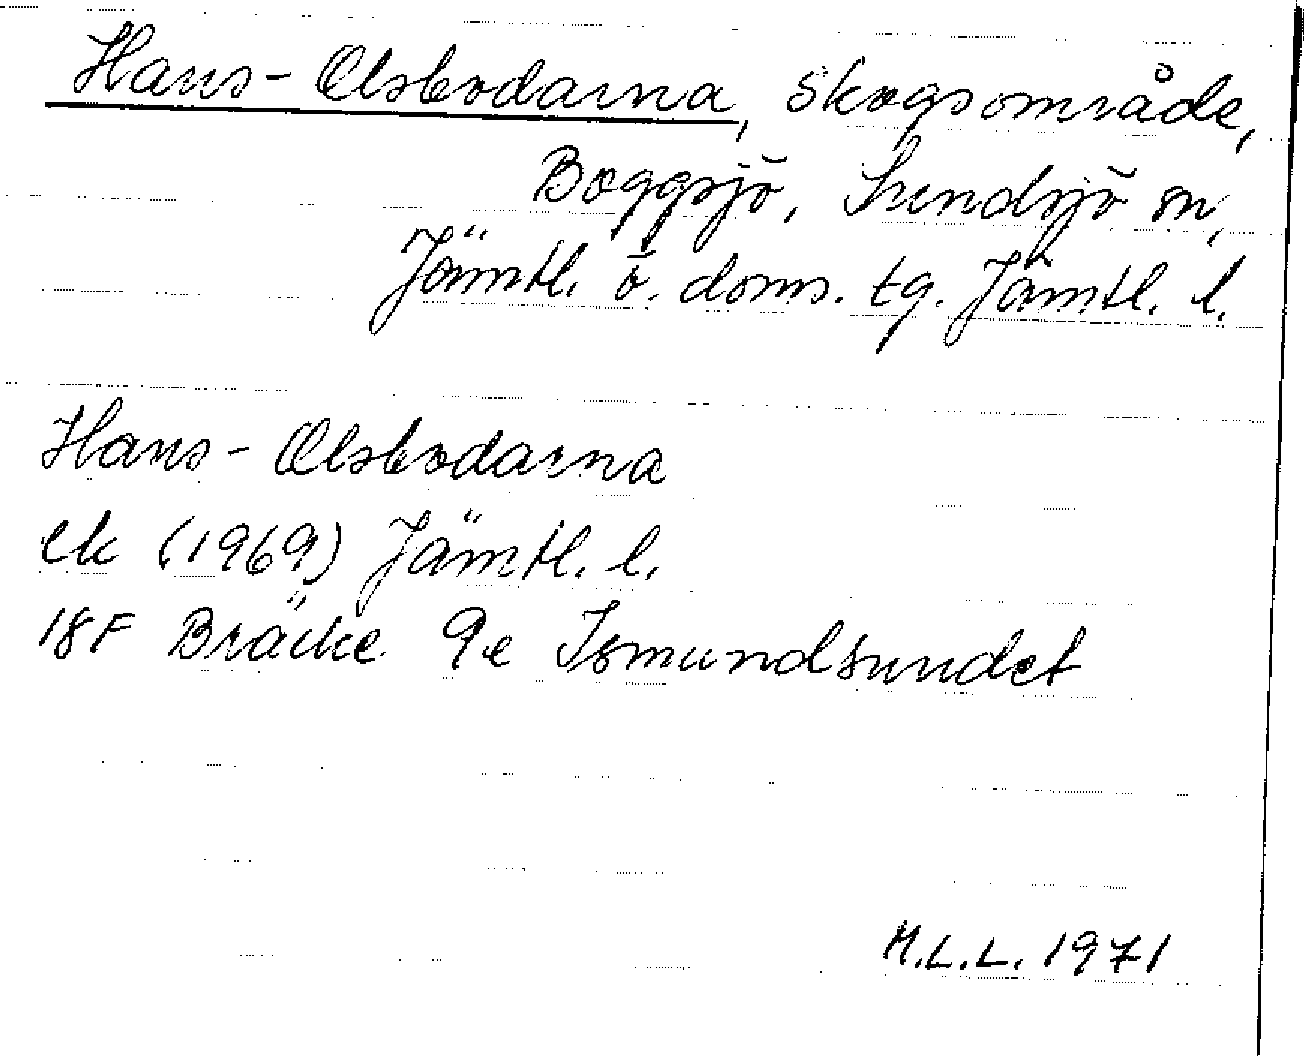 Hans-Olsbodarna, skogsområde,
Boggsjö, Sundsjö sn,
Jämtl. ö. doms. tg. Jämtl. l.
Hans-Olsbodarna
ek (1969) Jämtl. l.
18F Bräcke 9e Ismundsundet
M.L.L. 1971